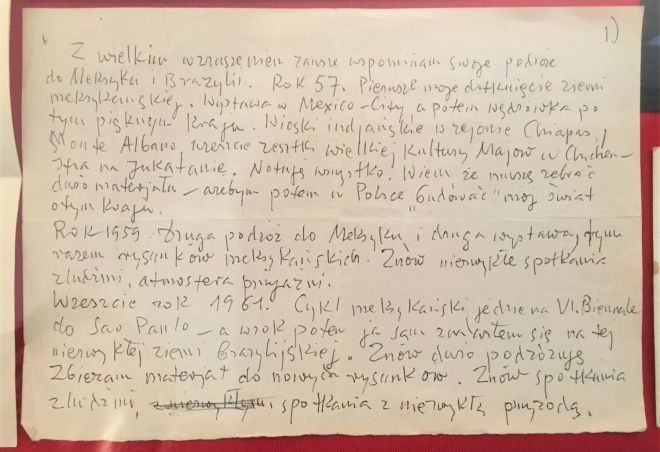 1)
Z wielkim wzruszeniem zawsze wspominam swoje podróże
do Meksyku i Brazylii. Rok 57. Pierwsze moje dotknięcie ziemi
meksykańskiej. Wystawa w Mexico-City a potem wędrówka po
tym pięknym kraju. Wioski indjańskie w rejonie Chiapas,
Monte Albano, wreszcie resztki wielkiej kultury Majów w Chichen-
Itza na Jukatanie. Notuję wszystko. Wiem że muszę zebrać
dużo materjału – ażebym potem w Polsce "budować" mój świat
o tym kraju.
Rok 1959. Druga podróż do Meksyku i druga wystawa, tym
razem rysunków meksykańskich. Znów niezwykłe spotkania
z ludźmi, atmosfera przyjaźni.
Wreszcie rok 1961. Cykl meksykański jedzie na VI. Biennale
do Sao Paulo – a w rok potem ja sam znalazłem się na tej
niezwykłej ziemi brazylijskiej. Znów dużo podróżuję
Zbieram materjał do nowych rysunków. Znów spotkania
z ludźmi, spotkania z niezwykłą przyrodą.